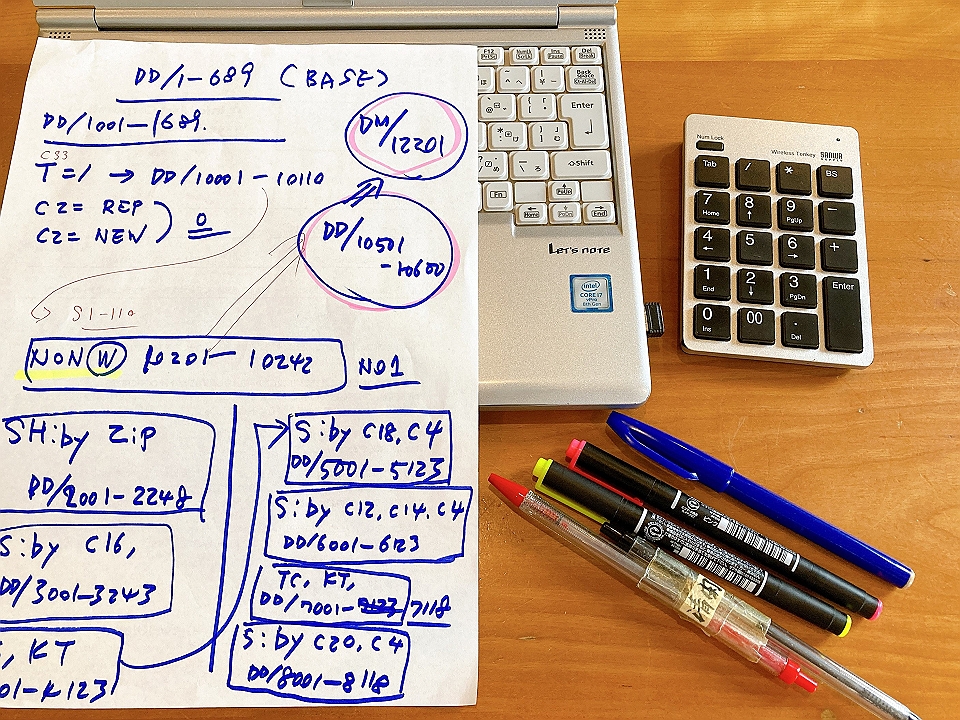 DD/1-689 (BASE)
DD/1001-1689.
C33
T=1 → DD/10001-10110
C2= REP
C2= NEW
0
DM/12201
DD/10501
-10600
S1-110
NON W 10201- 10242
NO1
SH:by Zip
DD/2001-2248
S:by C16,
DD/3001-3243
, KT
S:by C18, C4
DD/5001-5123
S:by C12, C14, C4
DD/6001-6123
TC, KT,
DD/7001-7123 7118
S:by C20, C4
DD/8001-8118
F12
PrtSc
NumLk
ScrLk
Ins
Pause
Del
Break
Back
Space
Enter
Shift
Fn
PgUp
Home
PgDn
End
Let's note
intel
CORE i7
vPro
8th Gen
Num Lock
Wireless Tenkey SANWA
SUPPLY
Tab / * BS
7 8 9 -
Home ↑ PgUp
4 5 6 +
← →
1 2 3 Enter
End ↓ PgDn
0 00 .
Ins Del